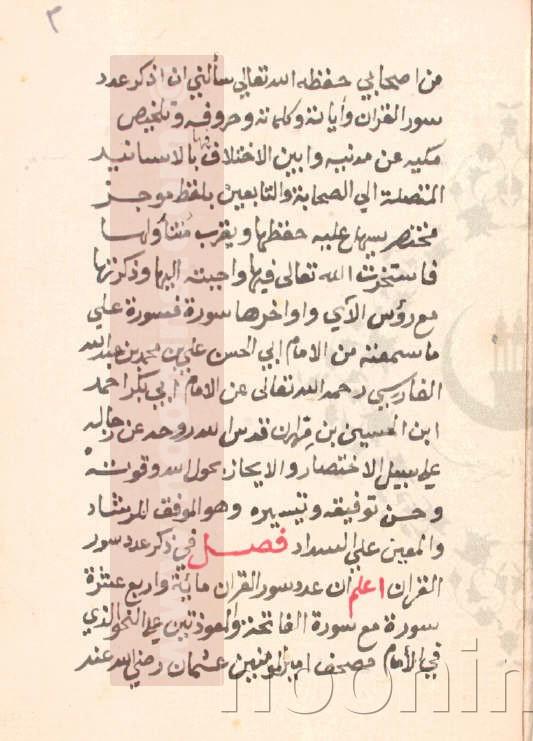 ٣
من اصحابي حفظه الله تعالى سألني ان اذكر عدد
سور القران وأياته وكلماته وحروفه وتلخيص
مكيه عن مدنيه وابين الاختلاف فيها بالاسانيد
المتصلة الى الصحابة والتابعين بلفظ موجز
مختصر يسهل عليه حفظها ويقرب متناولها
فاستخرت الله تعالى فيها واجبته اليها وذكرتها
مع رؤس الآي واواخرها سورة فسورة على
ما سمعته من الامام ابي الحسن علي بن محمد بن عبد الله
الفارسي رحمه الله تعالى عن الامام ابي بكر احمد
ابن الحسين بن مهران قدس الله روحه عن رجاله
على سبيل الاختصار والايجاز بحول الله وقوته
وحسن توفيقه وتيسيره وهو الموفق للرشاد
والمعين على السداد فصل في ذكر عدد سور
القران اعلم ان عدد سور القران مائة واربع عشرة
سورة مع سورة الفاتحة والمعوذتين على النحو الذي
في الأمام مصحف امير المومنين عثمان رضي الله عنه
noorin